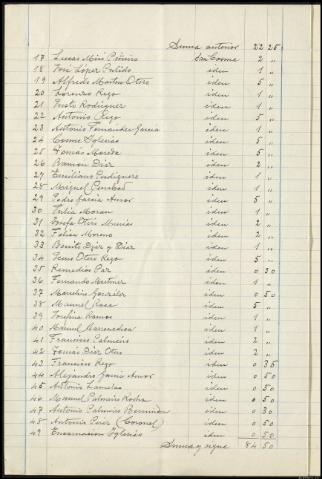 Suma anterior 22 25
17 Lucas Míos Piñeiro San Cosme 2 "
18 José López Pulido iden 1 "
19 Alfredo Martin Otero iden 5 "
20 Lorenzo Rego iden 1 "
21 Justo Rodriguez iden 1 "
22 Antonio Rego iden 5 "
23 Antonio Fernandez Garcia iden 1 "
24 Cosme Iglesias iden 5 "
25 Tomás Moreda iden 5 "
26 Ramón Diaz iden 2 "
27 Emiliano iden 1 "
28 Miguel iden 1 "
29 Pedro Garcia Amor iden 5 "
30 Julia Moran iden 1 "
31 Josefa Otero Munias iden 2 "
32 Felisa Moreno iden 2 "
33 Benito Diaz y Diaz iden 1 "
34 Jesus Otero Rego iden 5 "
35 Remedios Paz iden 0 30
36 Fernando Martinez iden 1 "
37 Marcelino González iden 0 50
38 Manuel iden 5 "
39 Josefina Ramos iden 1 "
40 Manuel iden 1 "
41 Francisco Palmeiro iden 2 "
42 Tomás Diaz Otero iden 2 "
43 Francisco Rego iden 0 35
44 Alejandro Garcia Amor iden 0 50
45 Antonio Lamelas iden 0 50
46 Manuel Palmeiro Rocha iden 0 30
47 Antonio Palmeiro Bermudez iden 0 30
48 Antonio Perez (Coronel) iden 0 50
49 Encarnacion Iglesias iden 0 50
Suma y sigue 84 50